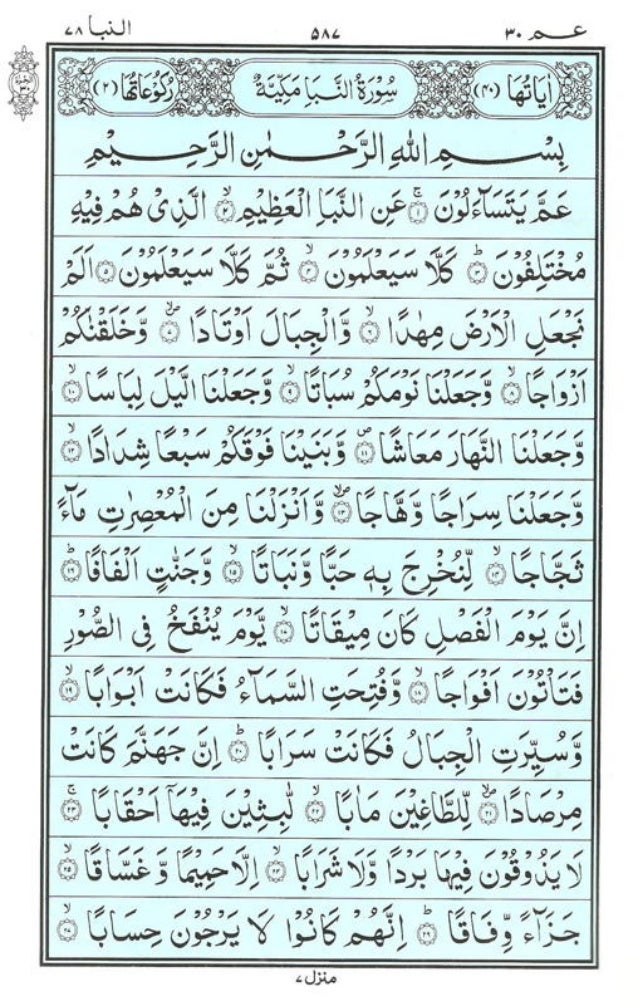 النبا ٧٨ ٥٨٧ عم ٣٠
اٰيَاتُهَا (٤٠) سُوْرَةُ النَّبَاِ مَكِّيَّةٌ رُكُوْعَاتُهَا (٢)
بِسْمِ اللّٰهِ الرَّحْمٰنِ الرَّحِيْمِ
عَمَّ يَتَسَآءَلُوْنَ ۚ‏﴿۱﴾ عَنِ النَّبَاِ الْعَظِيْمِ ۙ‏﴿۲﴾ الَّذِىْ هُمْ فِيْهِ
مُخْتَلِفُوْنَ ؕ‏﴿۳﴾ كَلَّا سَيَعْلَمُوْنَ ۙ‏﴿۴﴾ ثُمَّ كَلَّا سَيَعْلَمُوْنَ ‏﴿۵﴾ اَلَمْ
نَجْعَلِ الْاَرْضَ مِهٰدًا ۙ‏﴿۶﴾ وَّالْجِبَالَ اَوْتَادًا ۪ۙ‏﴿۷﴾ وَّخَلَقْنٰكُمْ
اَزْوَاجًا ۙ‏﴿۸﴾ وَّجَعَلْنَا نَوْمَكُمْ سُبَاتًا ۙ‏﴿۹﴾ وَّجَعَلْنَا الَّيْلَ لِبَاسًا ۙ‏﴿۱۰﴾
وَّجَعَلْنَا النَّهَارَ مَعَاشًا ۪‏﴿۱۱﴾ وَّبَنَيْنَا فَوْقَكُمْ سَبْعًا شِدَادًا ۙ‏﴿۱۲﴾
وَّجَعَلْنَا سِرَاجًا وَّهَّاجًا ۪ۙ‏﴿۱۳﴾ وَّاَنْزَلْنَا مِنَ الْمُعْصِرٰتِ مَآءً
ثَجَّاجًا ۙ‏﴿۱۴﴾ لِّنُخْرِجَ بِهٖ حَبًّا وَّنَبَاتًا ۙ‏﴿۱۵﴾ وَّجَنّٰتٍ اَلْفَافًا ؕ‏﴿۱۶﴾
اِنَّ يَوْمَ الْفَصْلِ كَانَ مِيْقَاتًا ۙ‏﴿۱۷﴾ يَّوْمَ يُنْفَخُ فِى الصُّوْرِ
فَتَاْتُوْنَ اَفْوَاجًا ۙ‏﴿۱۸﴾ وَّفُتِحَتِ السَّمَآءُ فَكَانَتْ اَبْوَابًا ۙ‏﴿۱۹﴾
وَّسُيِّرَتِ الْجِبَالُ فَكَانَتْ سَرَابًا ؕ‏﴿۲۰﴾ اِنَّ جَهَنَّمَ كَانَتْ
مِرْصَادًا ۪ۙ‏﴿۲۱﴾ لِّلطَّاغِيْنَ مَاٰبًا ۙ‏﴿۲۲﴾ لّٰبِثِيْنَ فِيْهَاۤ اَحْقَابًا ۚ‏﴿۲۳﴾
لَا يَذُوْقُوْنَ فِيْهَا بَرْدًا وَّلَا شَرَابًا ۙ‏﴿۲۴﴾ اِلَّا حَمِيْمًا وَّ غَسَّاقًا ۙ‏﴿۲۵﴾
جَزَآءً وِّفَاقًا ؕ‏﴿۲۶﴾ اِنَّهُمْ كَانُوْا لَا يَرْجُوْنَ حِسَابًا ۙ‏﴿۲۷﴾
منزل ٧